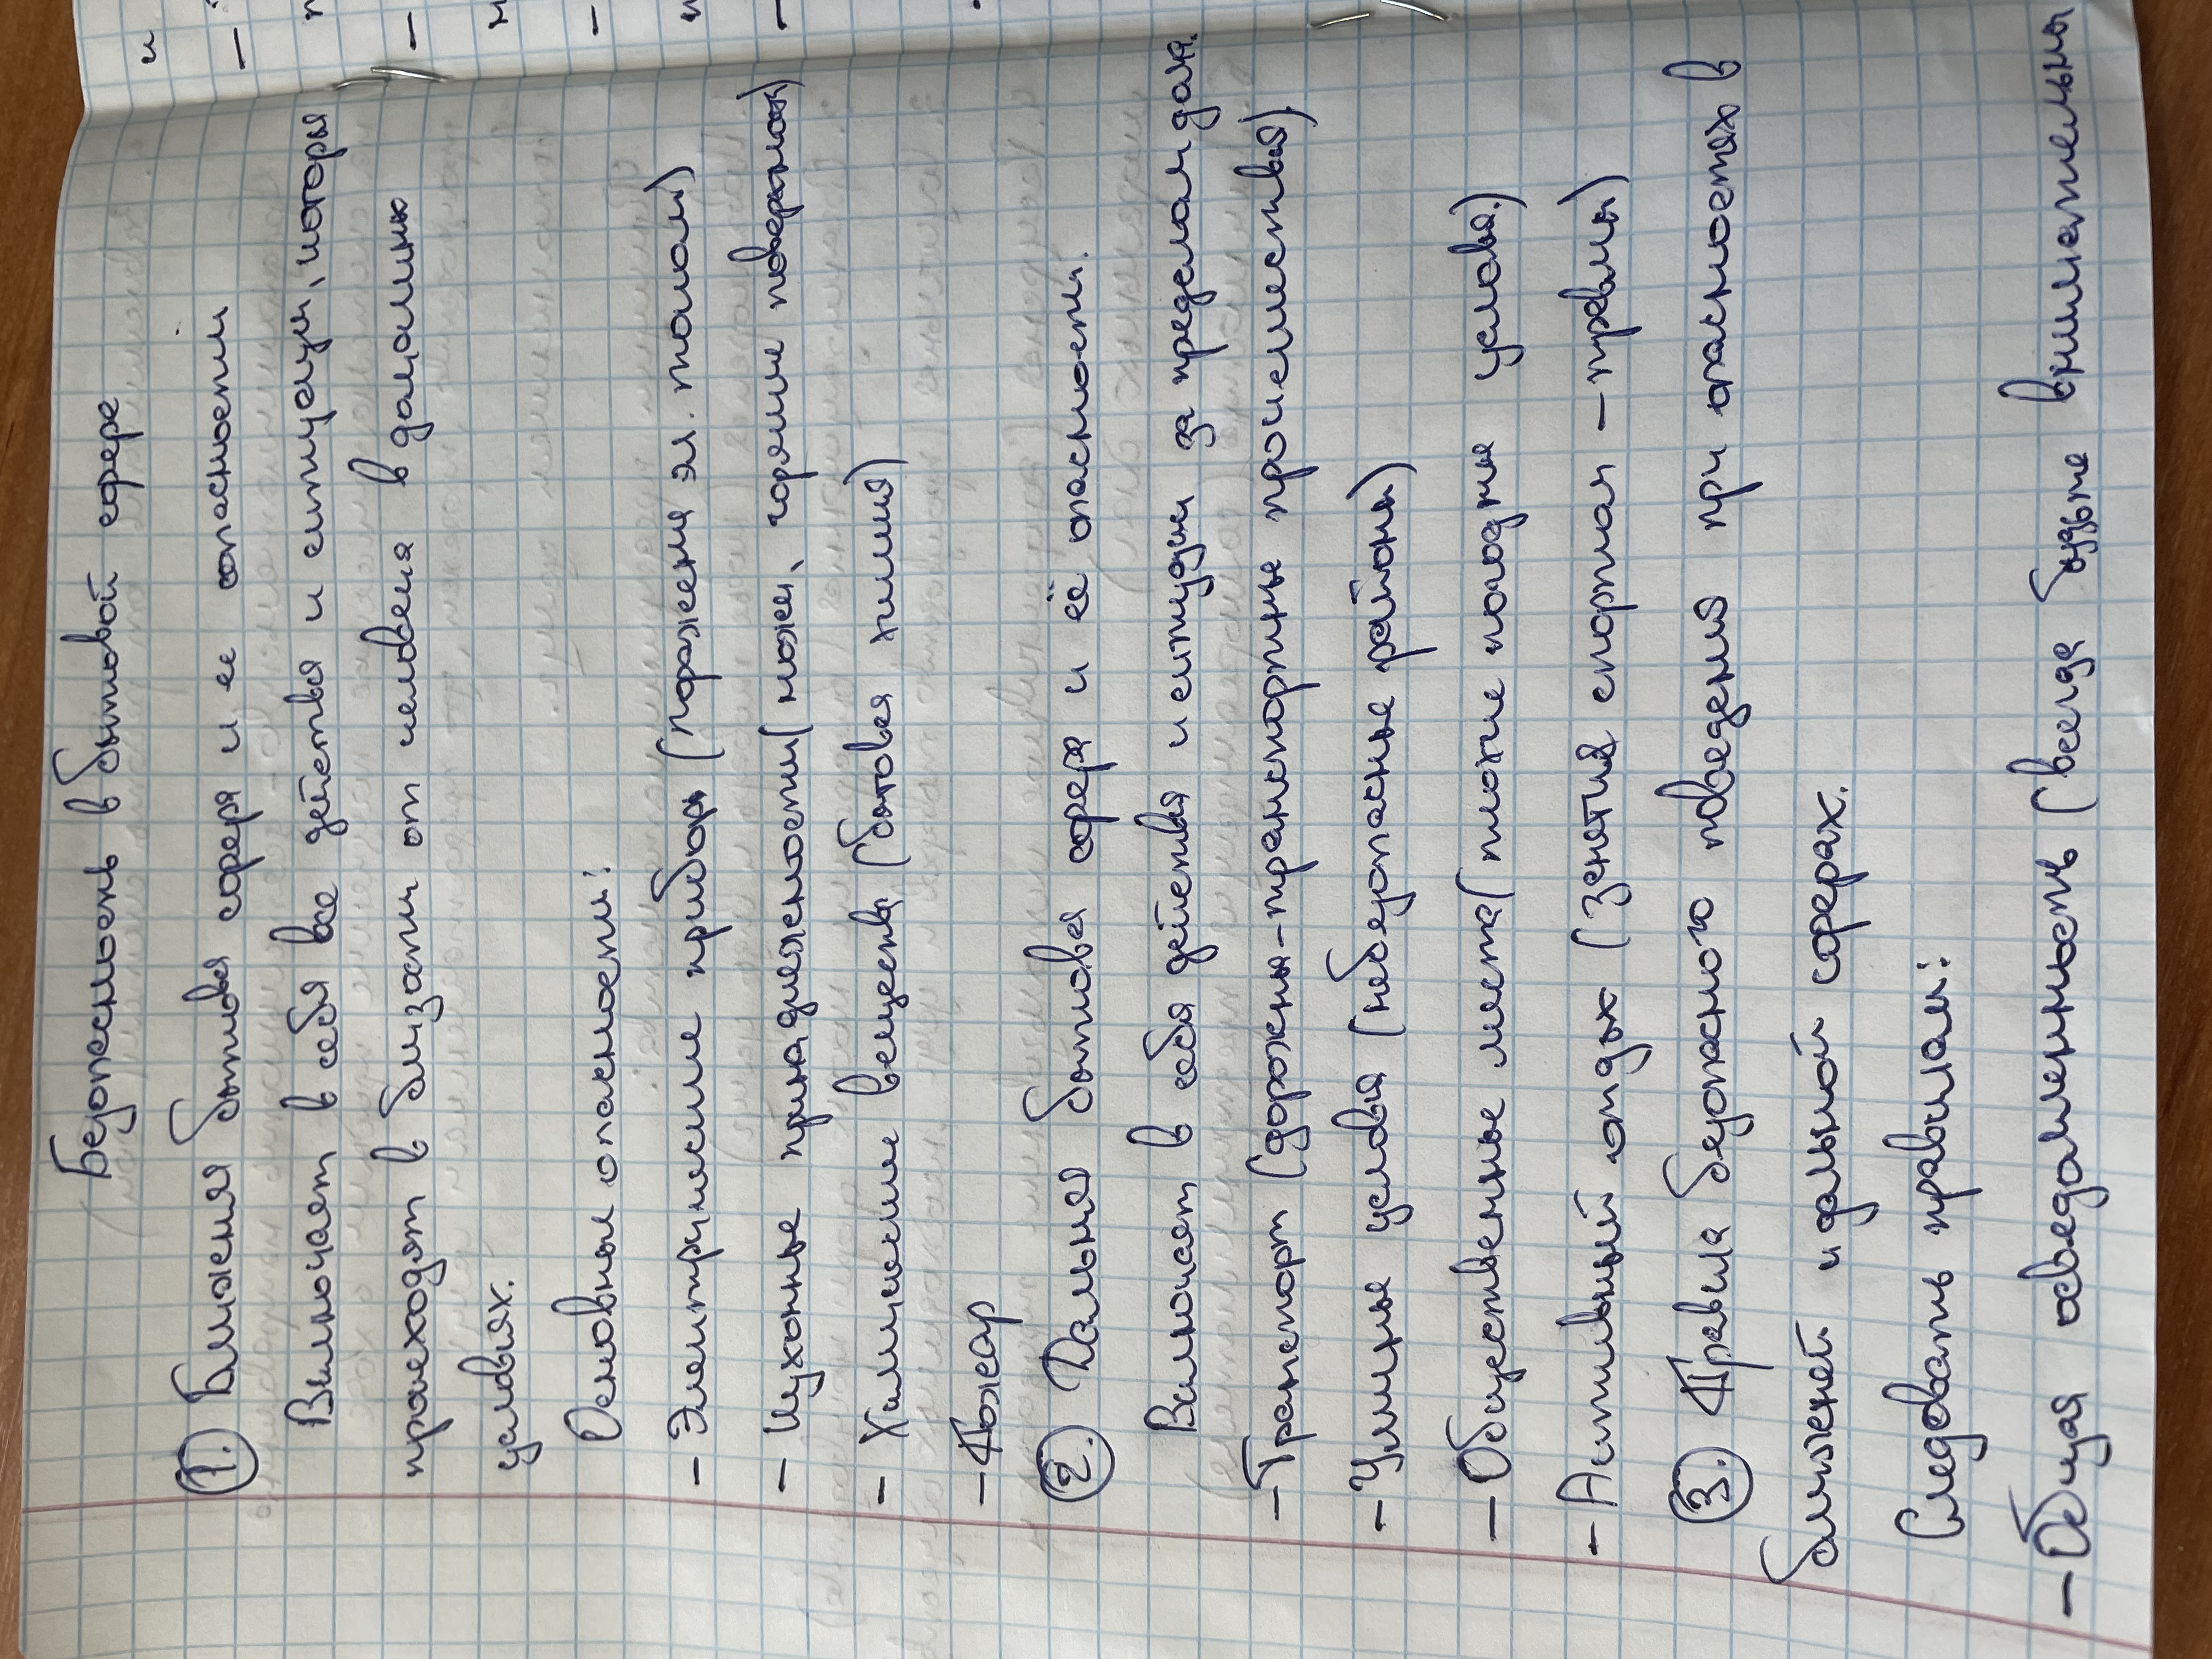 Безопасность в бытовой сфере
1. Ближняя бытовая сфера и ее опасности
Включает в себя все действия и ситуации, которы
происходят в близости от человека в домашних
условиях.
Основные опасности:
- Электрические приборы (поражение эл. током)
- Кухонные принадлежности (ножи, горячие поверхности)
- Химические вещества (бытовая химия)
- Пожар
2. Дальняя бытовая сфера и её опасности.
Включает в себя действия и ситуации за пределами дома.
- Транспорт (дорожны-транспортные происшествия)
- Уличные условия (небезопасные районы)
- Общественные места (плохие погодные условия)
- Активный отдых (занятия спортом - травмы)
3. Правила безопасного поведения при опасностях в
ближней и дальней сферах.
Следовать правилам:
- Общая осведомленность (всегда будьте внимательны